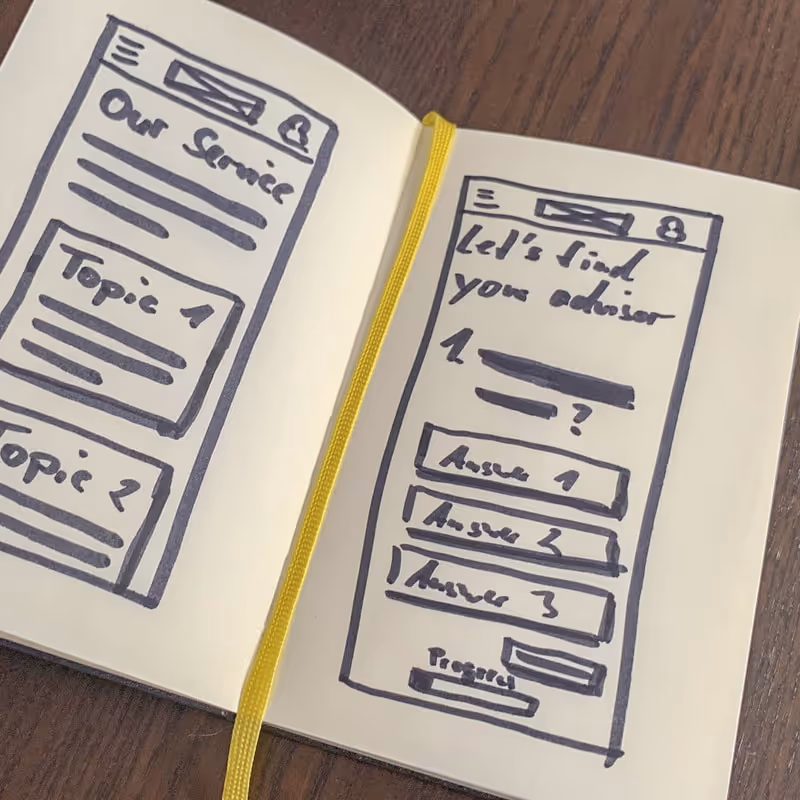 Our Service
Topic 1
Topic 2
Let's find
your advisor
1
?
Answer 1
Answer 2
Answer 3
Progress